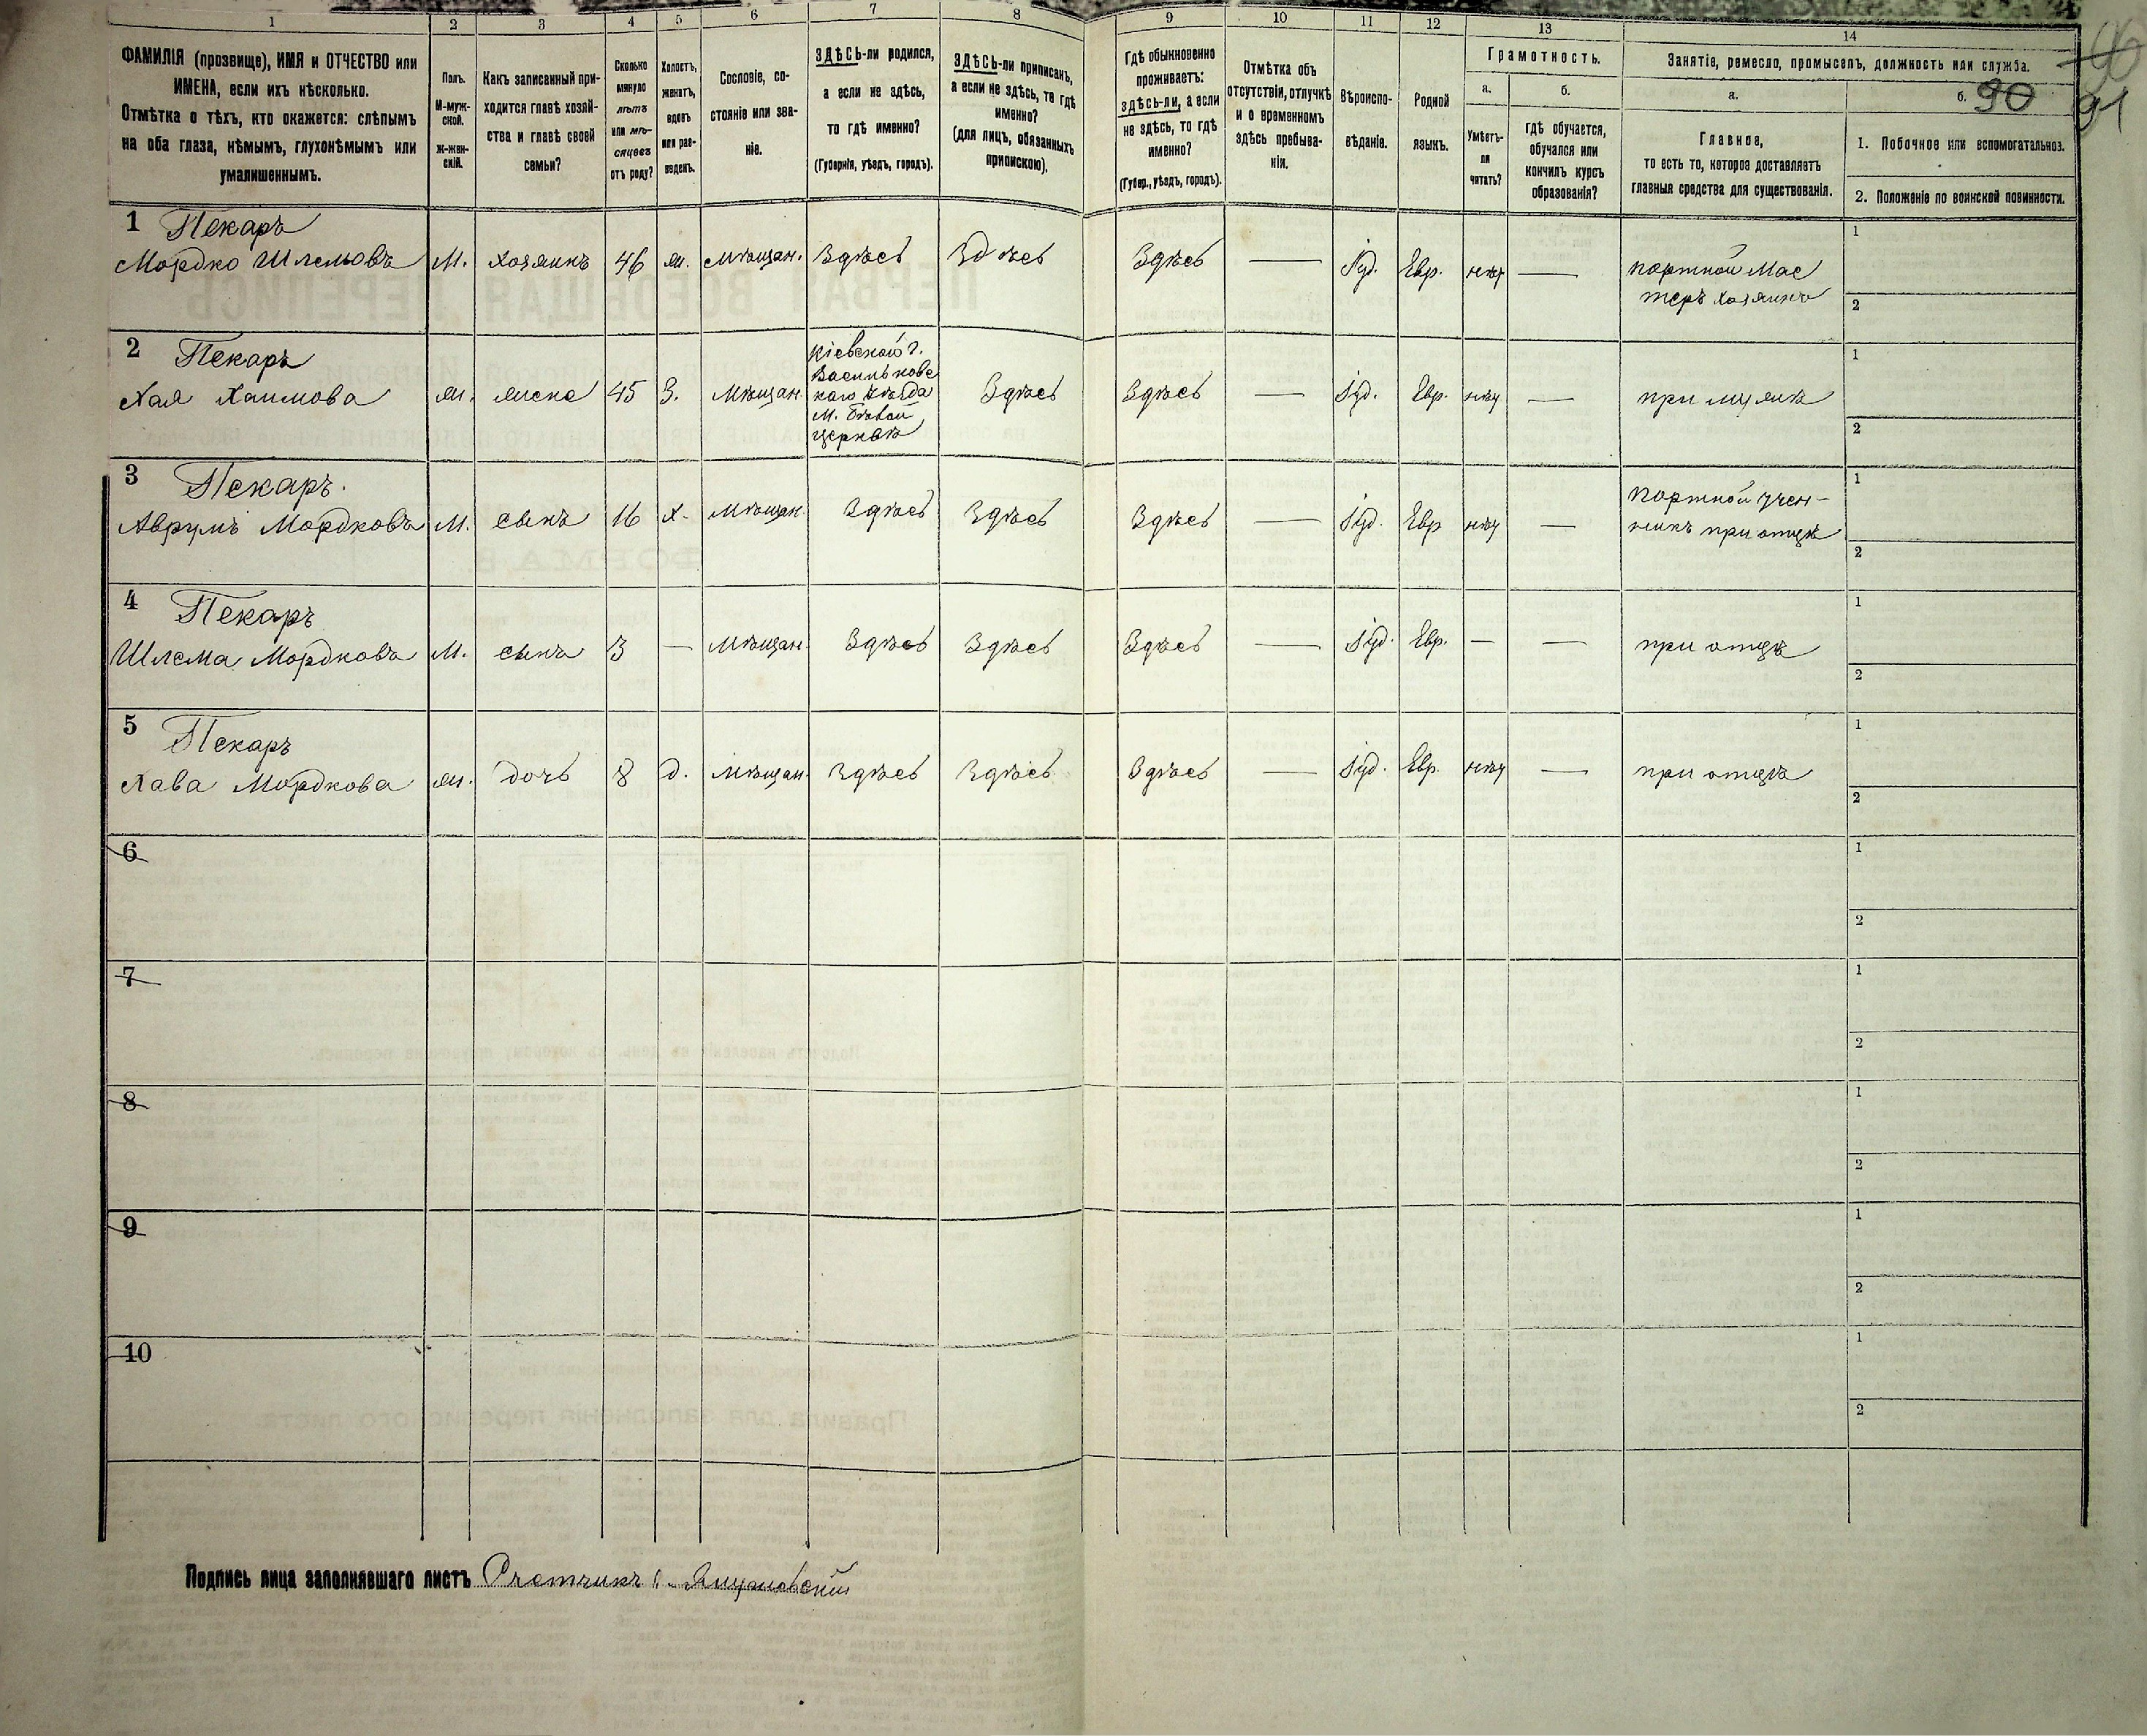 1 2 3 4 5 6 7 8 9 10 11 12 13 14
ФАМИЛІЯ (прозвище), ИМЯ и ОТЧЕСТВО или
ИМЕНА, если ихъ нѣсколько.
Отмѣтка о тѣхъ, кто окажется: слѣпымъ
на оба глаза, нѣмымъ, глухонѣмымъ или
умалишеннымъ.
Полъ.
М-муж-
ской.
ж-жен-
скій.
Какъ записанный при-
ходится главѣ хозяй-
ства и главѣ своей
семьи?
Сколько
минуло
лѣтъ
или мѣ-
сяцевъ
отъ роду?
Холостъ,
женатъ,
вдовъ
или раз-
веденъ.
Сословіе, со-
стояніе или зва-
ніе.
ЗДѢСЬ-ли родился,
а если не здѣсь,
то гдѣ именно?
(Губернія, уѣздъ, городъ).
ЗДѢСЬ-ли приписанъ,
а если не здѣсь, то гдѣ
именно?
(для лицъ, обязанныхъ
припиской).
Гдѣ обыкновенно
проживаетъ:
здѣсь-ли, а если
не здѣсь, то гдѣ
именно?
(Губер., уѣздъ, городъ).
Отмѣтка объ
отсутствіи, отлучкѣ
и о временномъ
здѣсь пребыва-
ніи.
Вѣроиспо-
вѣданіе.
Родной
языкъ.
Грамотность.
а.
Умѣетъ-
ли
читать?
б.
гдѣ обучается,
обучался или
кончилъ курсъ
образованія?
Занятіе, ремесло, промыселъ, должность или служба.
а.
Главное,
то есть то, которое доставляетъ
главныя средства для существованія.
б.
90
91
1. Побочное или вспомогательное.
2. Положеніе по воинской повинности.
1 Пекаръ
Мордко Шлемовъ М. хозяинъ 46 ж. мѣщан. Здѣсь Здѣсь Здѣсь — Іуд. Евр. нѣт — портной мас
теръ хозяинъ
1
2
2 Пекаръ
Хая Хаимова ж. жена 45 З. мѣщан. Кіевской г.
Васильковс
каго уѣзда
М. Бѣлой
церквѣ
Здѣсь Здѣсь — Іуд. Евр. нѣт — при мужѣ
1
2
3 Пекаръ.
Аврумъ Мордковъ М. сынъ 16 х. мѣщан Здѣсь Здѣсь Здѣсь — Іуд. Евр нѣт — портной учен-
никъ при отцѣ
1
2
4 Пекаръ
Шлема Мордковъ М. сынъ 3 — мѣщан. Здѣсь Здѣсь Здѣсь — Іуд. Евр. — — при отцѣ
1
2
5 Пекаръ
Хава Мордкова ж. дочь 8 д. мѣщан. Здѣсь Здѣсь Здѣсь — Іуд. Евр. нѣт — при отцѣ
1
2
6
1
2
7
1
2
8
1
2
9
1
2
10
1
2
Подпись лица заполнявшаго листъ Счетчикъ